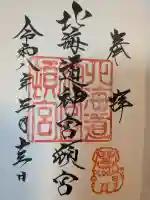 奉拝
北海道神宮頓宮
令和八年月日
北海道
神宮
頓宮